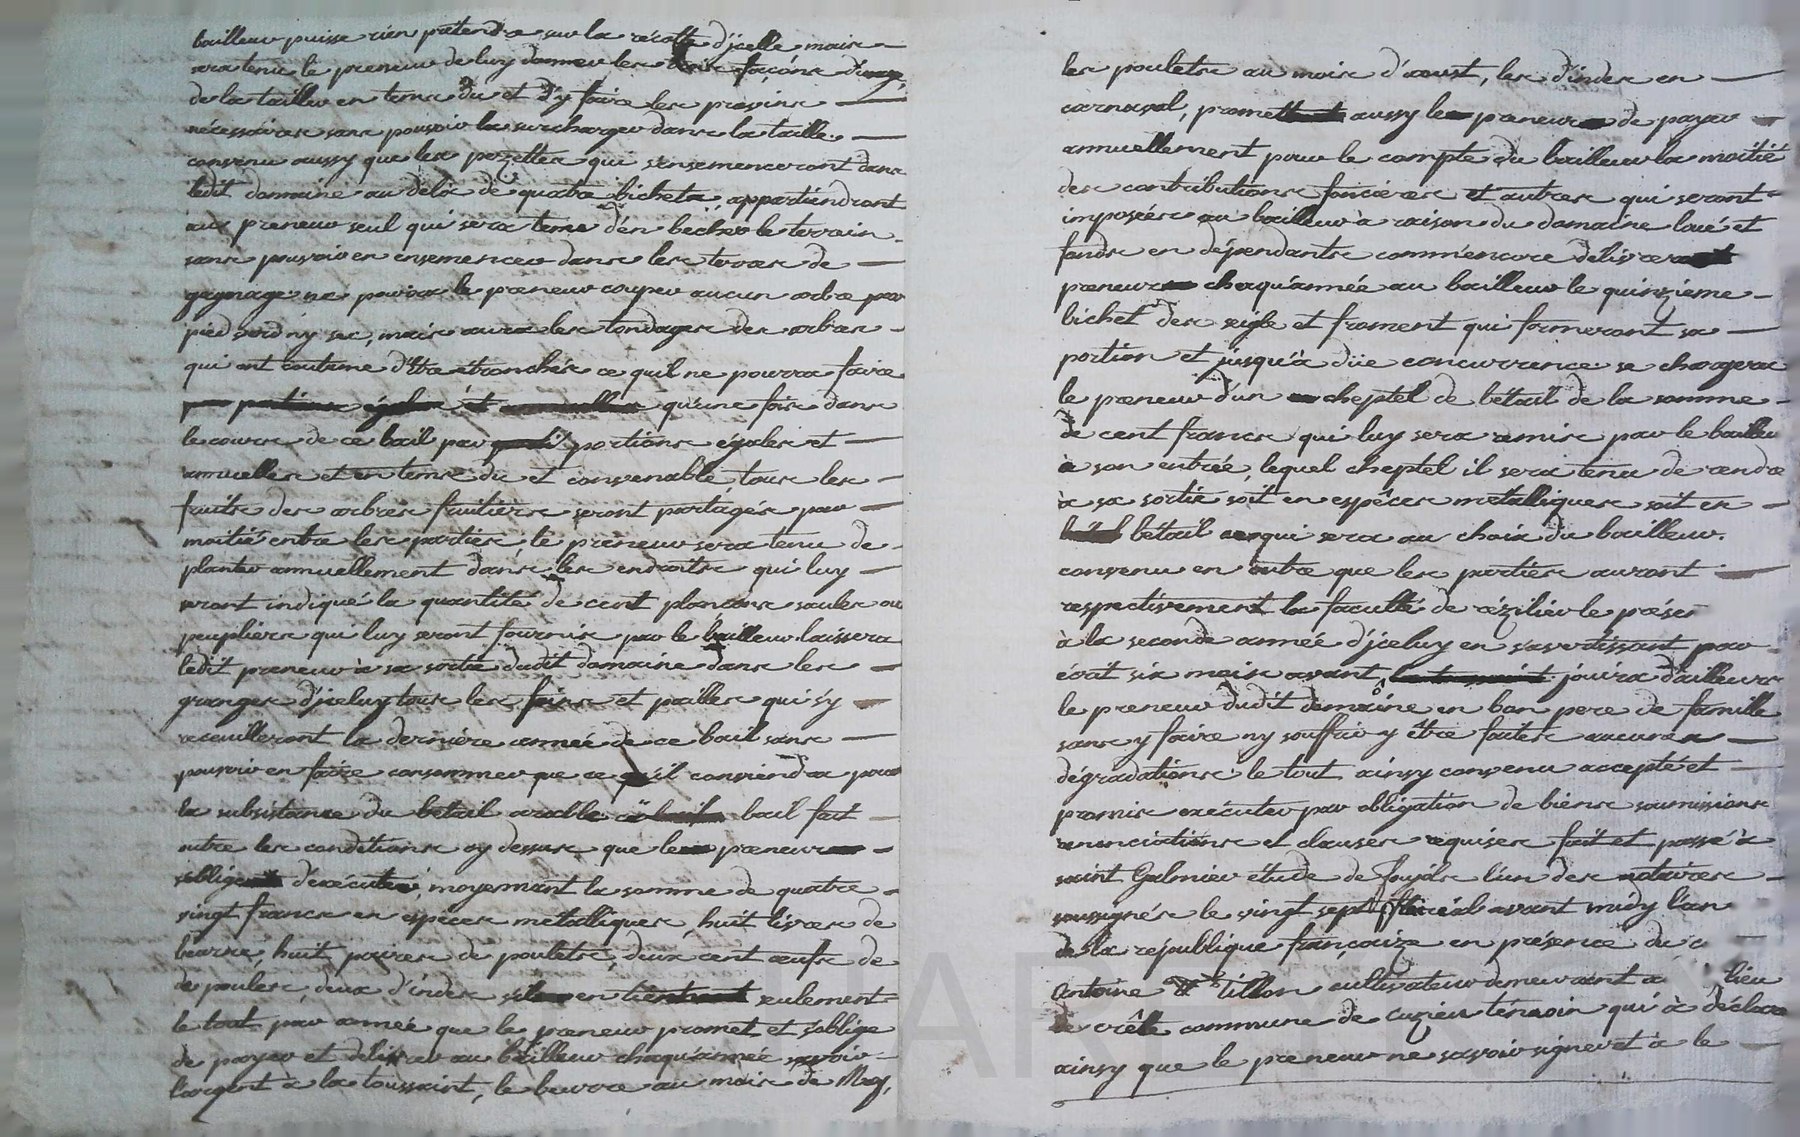 bailleur puisse rien prétendre sur la récolte d'jcelle mais
sera tenu le preneur de luy donner les trois façons d'usage,
de la tailler en tems du et d'y faire les provins
nécessaires sans pouvoir la surcharger dans la taille.
convenu aussy que les pezettes qui s'ensemenceront dans
ledit domaine au dela de quatre bichets, appartiendront
aux preneur seul qui sera tenu d'en becher le terrain
sans pouvoir en ensemencer dans les terres de
gagnage ne pourra le preneur couper aucun arbre par
pied verd ny sec, mais aura les tondages des arbres
qui ont coutume d'être ébranchés ce qu'il ne pourra faire
par portions égales et annuelles qu'une fois dans
le cours de ce bail par portions égales et
annuelles et en tems du et convenable, tous les
fruits des arbres fruitiers seront partagés par
moitié entre les parties, le preneur sera tenu de
planter annuellement dans les endroits qui luy
seront indiqué la quantité de cent plançons saules ou
peupliers qui luy seront fournis par le bailleur laissera
ledit preneur à sa sortie dudit domaine dans les
granges d'jceluy tous les foins et pailles qui s'y
receuilleront la dernière année de ce bail sans
pouvoir en faire consommer que ce qu'il conviendra pour
la subsistance du betail arable ce bail fait
outre les conditions cy dessus que le preneur
s'oblige d'exécuter, moyennant la somme de quatre
vingt francs en espèces metalliques, huit livres de
beurre, huit paires de poulets, deux cent œufs de
de poules, deux d'indes s'il en tient seulement
le tout par année que le preneur promet et s'oblige
de payer et délivrer au bailleur chaqu'année savoir
l'argent à la toussaint, le beurre au mois de May,
les poulets au mois d'aoust, les d'indes en
carnaval, promet aussy le preneur de payer
annuellement pour le compte du bailleur la moitié
des contributions foncières et autres qui seront
imposées au bailleur à raison du domaine loué et
fonds en dépendants comm'encore délivrera
preneur chaqu'année au bailleur le quinzieme
bichet des seigle et froment qui formeront sa
portion et jusqu'à düe concurrence se chargera
le preneur d'un cheptel de bétail de la somme
de cent francs qui luy sera remis par le bailleur
a son entrée, lequel cheptel il sera tenu de rendre
à sa sortie soit en espèces métalliques soit en
bétail ce qui sera au choix du bailleur.
convenu en outre que les parties auront
respectivement la faculté de rézilier le présent
à la seconde année d'jceluy en s'avertissant par
écrit six mois avant, jouira d'ailleurs
le preneur dudit domaine en bon pere de famille
sans y faire ny souffrir y être faites aucunes
dégradations le tout ainsy convenu accepté et
promis exécuter par obligation de biens soumissions
renonciations et clauses requises fait et passé à
saint Galmier étude de l'un des notaires
soussignés le vingt sept floréal avant midy l'an
de la république françaize en présence du
Antoine Tillon cultivateur demeurant a lieu
de crêt commune de cuzieu témoin qui a déclaré
ainsy que le preneur ne savoir signer et a le